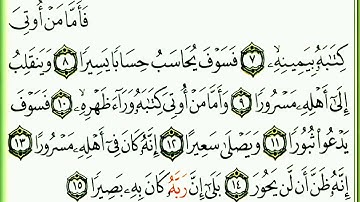 فَأَمَّا مَنْ أُوتِىَ
كِتَٰبَهُۥ بِيَمِينِهِۦ ٧ فَسَوْفَ يُحَاسَبُ حِسَابًا يَسِيرًا ٨ وَيَنقَلِبُ
إِلَىٰٓ أَهْلِهِۦ مَسْرُورًا ٩ وَأَمَّا مَنْ أُوتِىَ كِتَٰبَهُۥ وَرَآءَ ظَهْرِهِۦ ١٠ فَسَوْفَ
يَدْعُوا۟ ثُبُورًا ١١ وَيَصْلَىٰ سَعِيرًا ١٢ إِنَّهُۥ كَانَ فِىٓ أَهْلِهِۦ مَسْرُورًا ١٣
إِنَّهُۥ ظَنَّ أَن لَّن يَحُورَ ١٤ بَلَىٰٓ إِنَّ رَبَّهُۥ كَانَ بِهِۦ بَصِيرًا ١٥